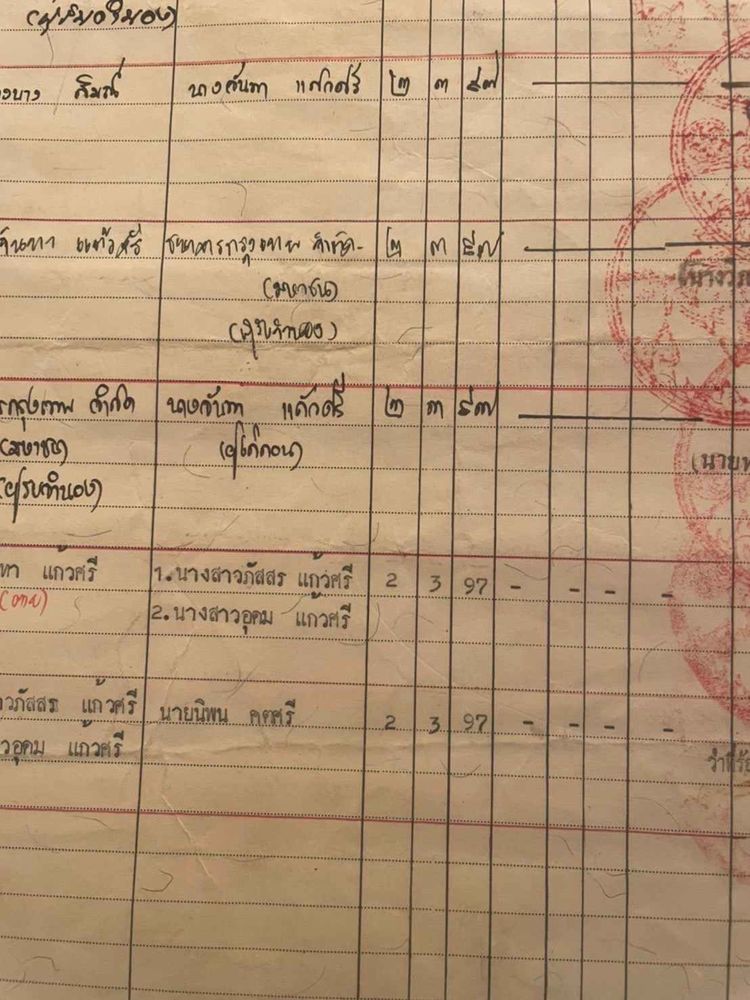 นางจันทา แก้วศรี ๒ ๓ ๙๗
จันทา แก้วศรี ธนาคารกรุงเทพ จำกัด ๒ ๓ ๙๗
(มหาชน)
(ผู้รับจำนอง)
(นางวิภ
กรุงเทพ จำกัด นางจันทา แก้วศรี ๒ ๓ ๙๗
(มหาชน) (ผู้ไถ่ถอน)
(ผู้รับจำนอง)
(นาย
ทา แก้วศรี 1.นางสาวภัสสร แก้วศรี 2 3 97 - - - -
(ตาย) 2.นางสาวอุดม แก้วศรี
วภัสสร แก้วศรี นายนิพน คตศรี 2 3 97 - - - -
วอุดม แก้วศรี
ว่าที่ร้อ